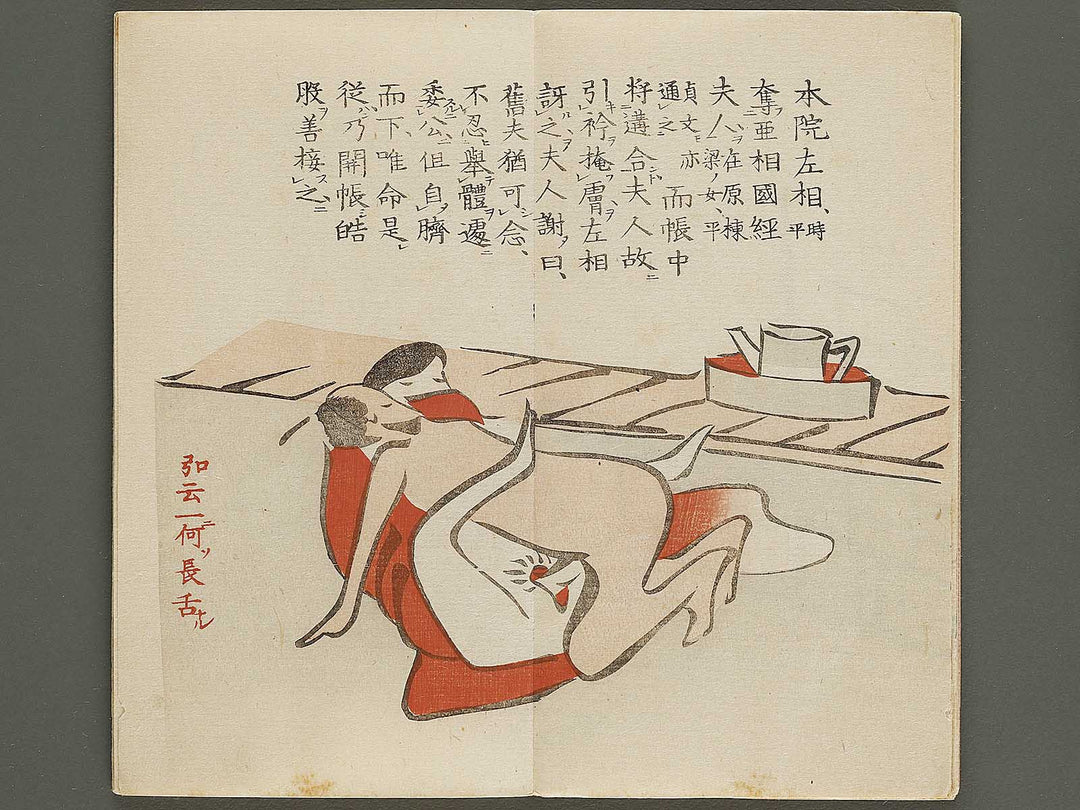 本院左相、時平
奪亜相國經
夫人、在原棟
梁ノ女、平
貞文モ亦
通之、而帳中
将遘合夫人故ニ
引衿掩膚左相
訝之夫人謝曰、
舊夫猶可念、
不忍擧體遽ニ
委公但自臍
而下、唯命是
従乃開帳皓
股善接之
弘云一何ニソ長舌ナル